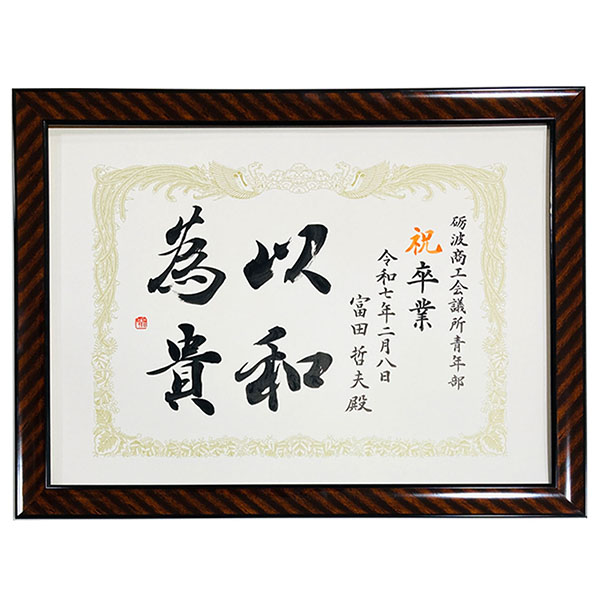 砺波商工会議所青年部
祝卒業
令和七年二月八日
富田哲夫殿
以和
為貴